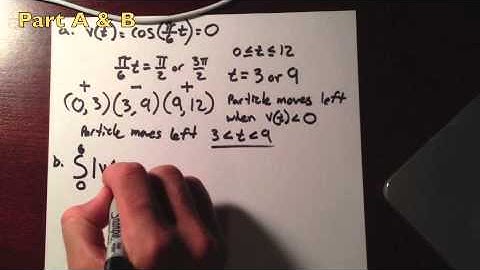 Part A & B
a. v(t) = cos(π/6 t) = 0
π/6 t = π/2 or 3π/2
0 ≤ t ≤ 12
t = 3 or 9
+ − +
(0,3)(3,9)(9,12)
Particle moves left
when v(t) < 0
Particle moves left 3 < t < 9
b. ∫₀⁶ |v